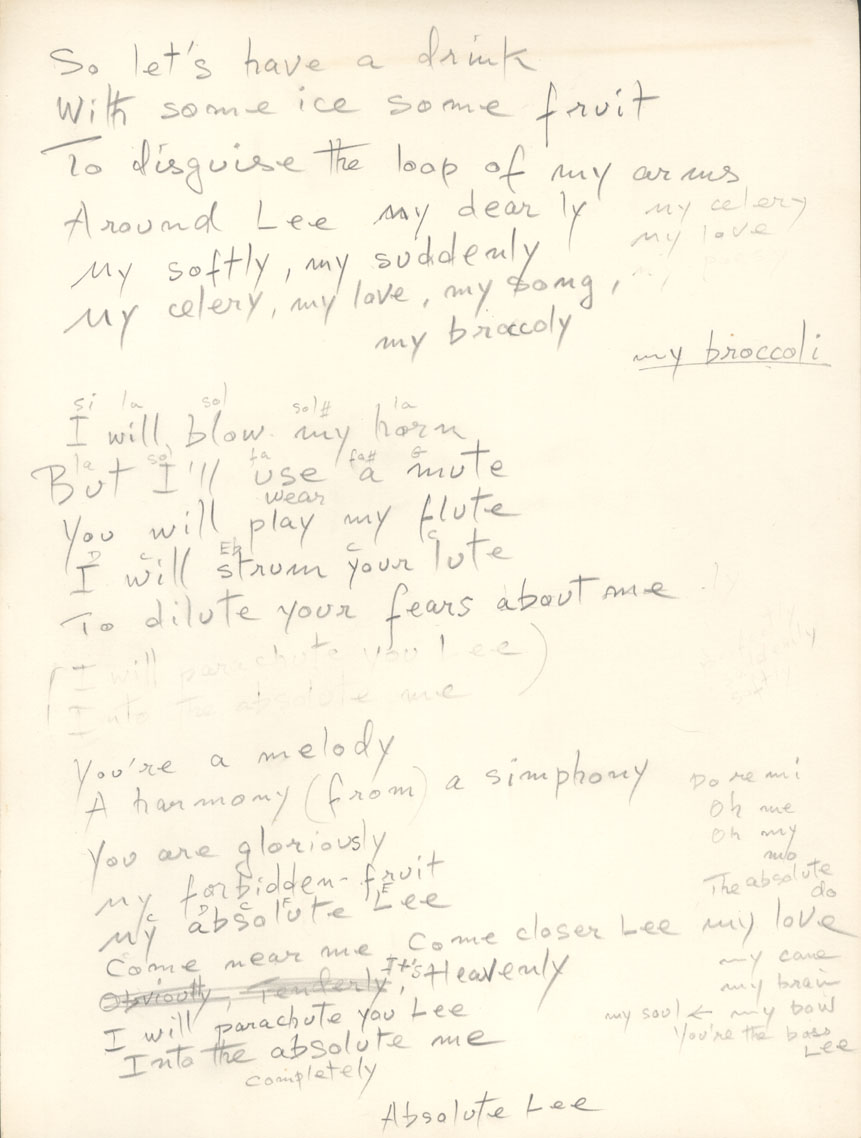 So let's have a drink
With some ice some fruit
To disguise the loop of my arms
Around Lee my dear ly my celery
my love
My softly, my suddenly
My celery, my love, my song,
my broccoly
my broccoli
si la sol sol# la
I will blow my horn
la sol fa fa# G
But I'll use a mute
wear
You will play my flute
D C Eb C C
I will strum your lute
To dilute your fears about me ly
suddenly
softly
(I will parachute you Lee)
Into the absolute me
You're a melody
A harmony (from) a simphony
Do re mi
Oh me
Oh my
mo
The absolute
do
You are gloriously
My forbidden-fruit
C D C F E
My absolute Lee
Come near me Come closer Lee my love
Obviously, Tenderly, It's Heavenly
my cane
my brain
my soul ← my bow
You're the boss
Lee
I will parachute you Lee
Into the absolute me
completely
Absolute Lee